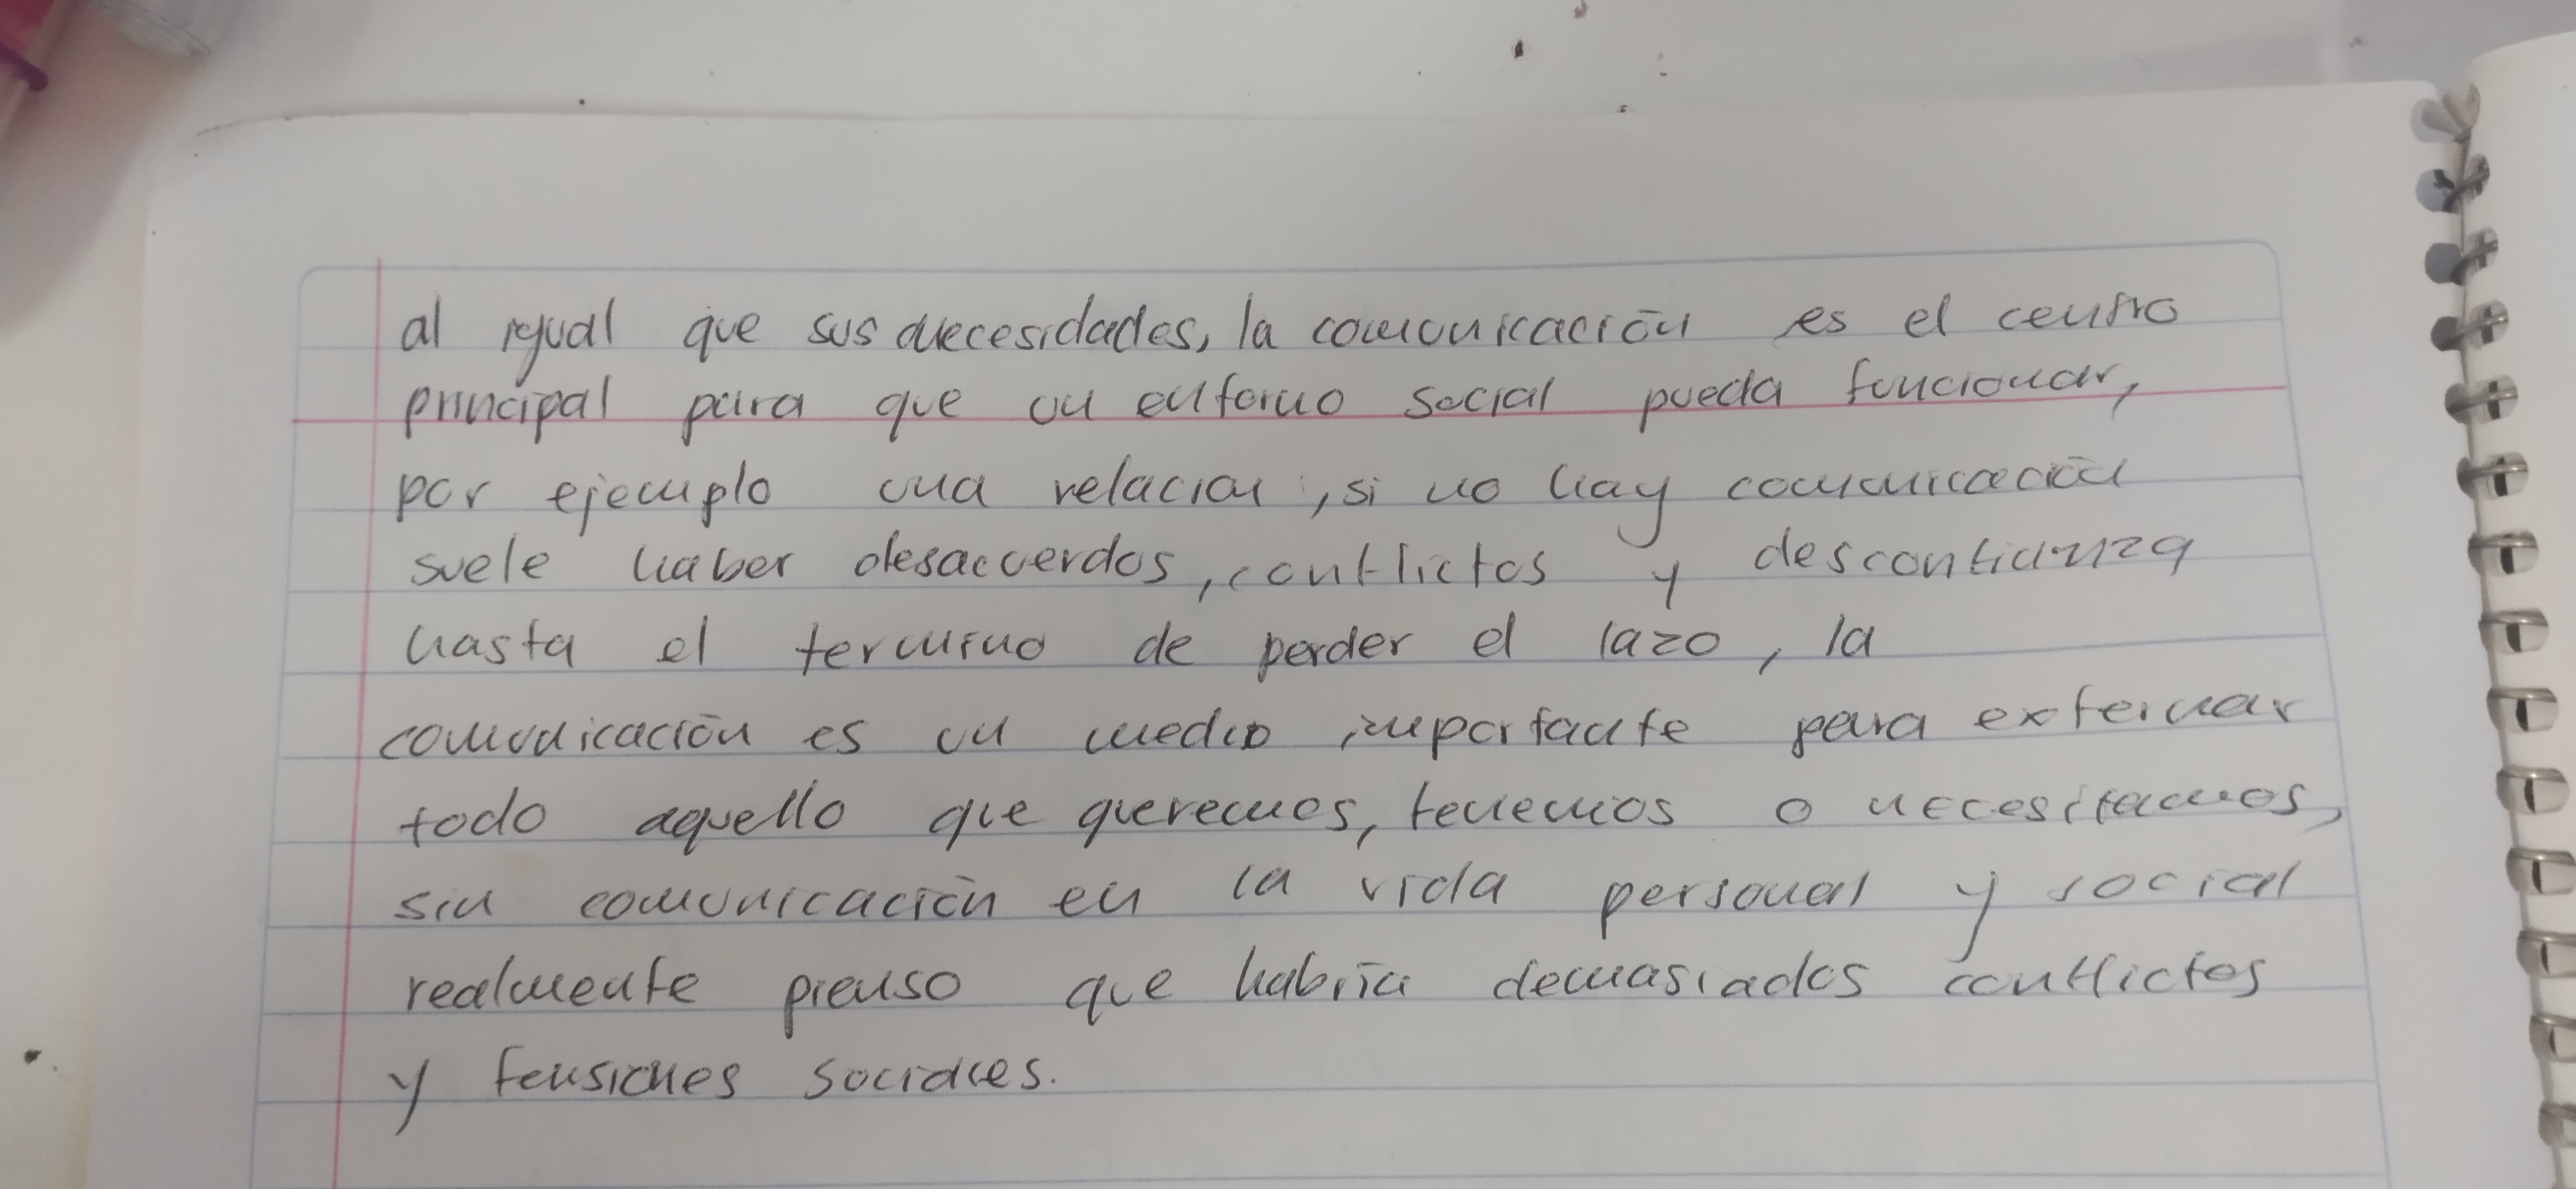 al igual que sus necesidades, la comunicación es el centro
principal para que un entorno social pueda funcionar,
por ejemplo una relación, si no hay comunicación
suele haber desacuerdos, conflictos y desconfianza
hasta el termino de perder el lazo, la
comunicación es un medio importante para externar
todo aquello que queremos, tenemos o necesitamos,
sin comunicación en la vida personal y social
realmente pienso que habría demasiados conflictos
y tensiones sociales.